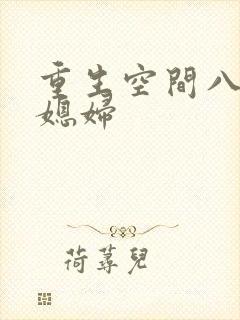 重生空間八
媳婦
荷蕁兒